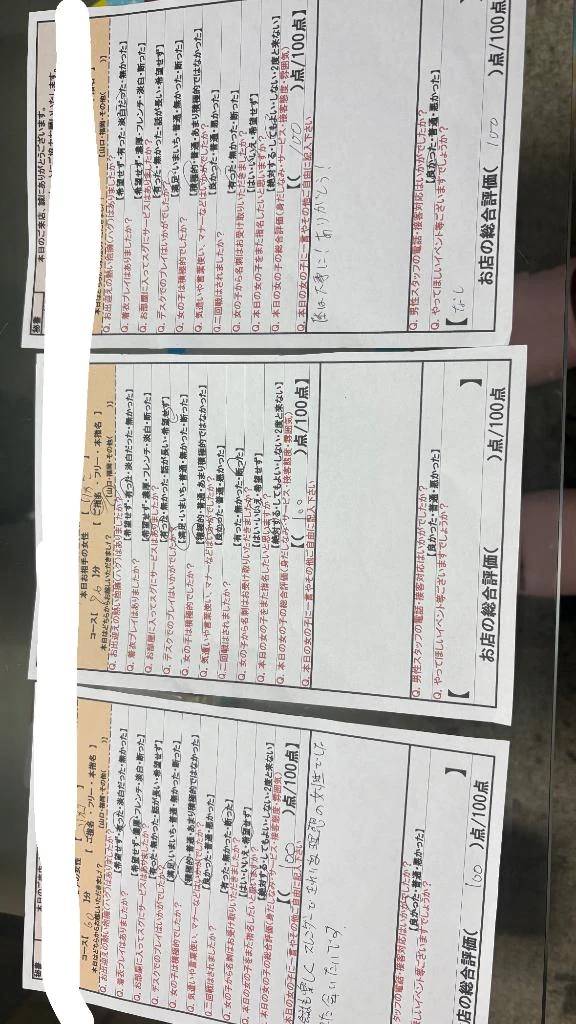 秘書
の女性 【
コース【 60 】分 【 ご指名 ・ フリー ・ 本指名 】
本日はどちらからお越しいただきまし? (山口・福岡・その他(
Q. お出迎えの熱い抱擁(ハグ)はありましたか?
【希望せず・有った・淡白だった・無かった】
Q. 着衣プレイはありましたか?
【希望せず・濃厚・フレンチ・淡白・断った】
Q. お部屋に入ってスグにサービスはありましたか?
【有った・無かった・話が長い・希望せず】
Q. デスクでのプレイはいかがでしたか?
【満足・いまいち・普通・無かった・断った】
Q. 女の子は積極的でしたか?
【積極的・普通・あまり積極的ではなかった】
Q. 気遣いや言葉使い、マナーなどはいかがでしたか?
【良かった・普通・悪かった】
Q. 二回戦はされましたか?
【有った・無かった・断った】
Q. 女の子から名刺はお受け取りいただきましたか?
【はい・いいえ・希望せず】
Q. 本日の女の子をまた指名したいと思いますか?
【絶対する・してもよい・しない・2度と来ない】
Q. 本日の女の子の総合評価(身だしなみ・サービス・接客態度・雰囲気)
【( 100 )点/100点
Q. 本日の女の子に一言やその他ご自由に記入下さい
スレンダーで
理想の女性でした
会いたいです
タッフの電話・接客対応はいかがでしたか?
【良かった・普通・悪かった】
ほしいイベント等ございますでしょうか?
】
店の総合評価( 100 )点/100点
本日お相手の女性 【
】
コース【 】分 【 ご指名 ・ フリー ・ 本指名 】
本日はどちらからお越しいただきまし? (山口・福岡・その他(
Q. お出迎えの熱い抱擁(ハグ)はありましたか?
【希望せず・有った・淡白だった・無かった】
Q. 着衣プレイはありましたか?
【希望せず・濃厚・フレンチ・淡白・断った】
Q. お部屋に入ってスグにサービスはありましたか?
【有った・無かった・話が長い・希望せず】
Q. デスクでのプレイはいかがでしたか?
【満足・いまいち・普通・無かった・断った】
Q. 女の子は積極的でしたか?
【積極的・普通・あまり積極的ではなかった】
Q. 気遣いや言葉使い、マナーなどはいかがでしたか?
【良かった・普通・悪かった】
Q. 二回戦はされましたか?
【有った・無かった・断った】
Q. 女の子から名刺はお受け取りいただきましたか?
【はい・いいえ・希望せず】
Q. 本日の女の子をまた指名したいと思いますか?
【絶対する・してもよい・しない・2度と来ない】
Q. 本日の女の子の総合評価(身だしなみ・サービス・接客態度・雰囲気)
【( 100 )点/100点
Q. 本日の女の子に一言やその他ご自由に記入下さい
Q. 男性スタッフの電話・接客対応はいかがでしたか?
【良かった・普通・悪かった】
Q. やってほしいイベント等ございますでしょうか?
【 】
お店の総合評価( )点/100点
秘書
本日のご来店、誠にありがとうございます。
(山口・福岡・その他(
Q. お出迎えの熱い抱擁(ハグ)はありましたか?
【希望せず・有った・淡白だった・無かった】
Q. 着衣プレイはありましたか?
【希望せず・濃厚・フレンチ・淡白・断った】
Q. お部屋に入ってスグにサービスはありましたか?
【有った・無かった・話が長い・希望せず】
Q. デスクでのプレイはいかがでしたか?
【満足・いまいち・普通・無かった・断った】
Q. 女の子は積極的でしたか?
【積極的・普通・あまり積極的ではなかった】
Q. 気遣いや言葉使い、マナーなどはいかがでしたか?
【良かった・普通・悪かった】
Q. 二回戦はされましたか?
【有った・無かった・断った】
Q. 女の子から名刺はお受け取りいただきましたか?
【はい・いいえ・希望せず】
Q. 本日の女の子をまた指名したいと思いますか?
【絶対する・してもよい・しない・2度と来ない】
Q. 本日の女の子の総合評価(身だしなみ・サービス・接客態度・雰囲気)
( 100 )点/100点
Q. 本日の女の子に一言やその他ご自由に記入下さい
ありがとう!
Q. 男性スタッフの電話・接客対応はいかがでしたか?
【良かった・普通・悪かった】
Q. やってほしいイベント等ございますでしょうか?
【 なし 】
お店の総合評価( 100 )点/100点